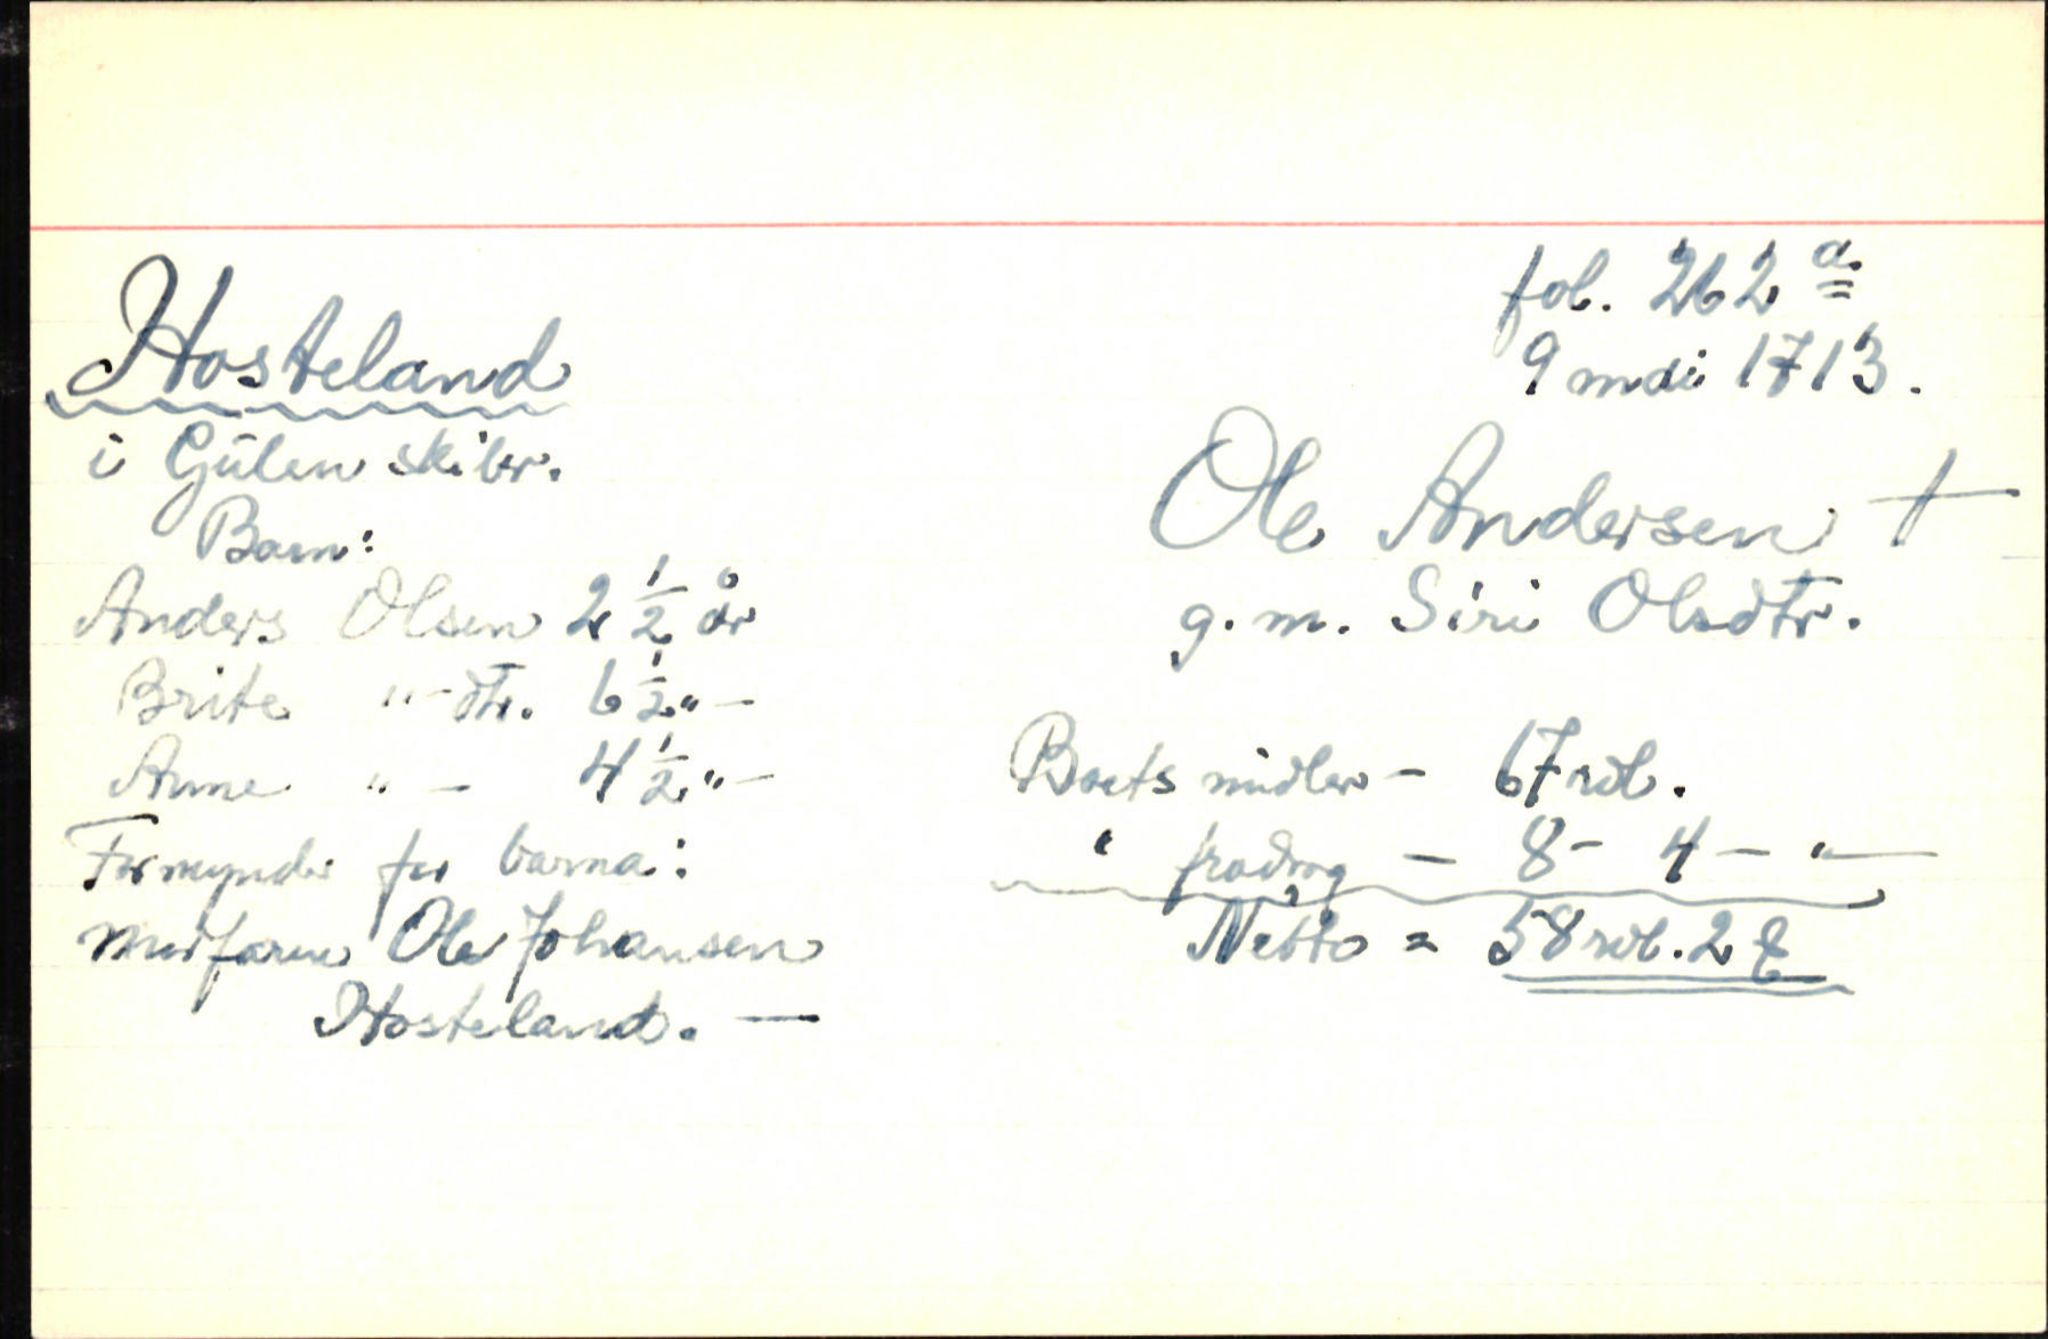 Hosteland
i Gŭlen skibr.
Barn:
Anders Olsen 2 1/2 år
Brite "-dtr. 6 1/2 "-
Anne "- 4 1/2 "-
Formynder for barna:
morfaren Ole Johansen
Hosteland. —
fol. 262 a.
9 mai 1713.
Ole Andersen †
g. m. Siri Olsdtr.
Boets midler - 67 rdl.
" fradrag - 8 - 4 - "
Netto = 58 rdl. 2